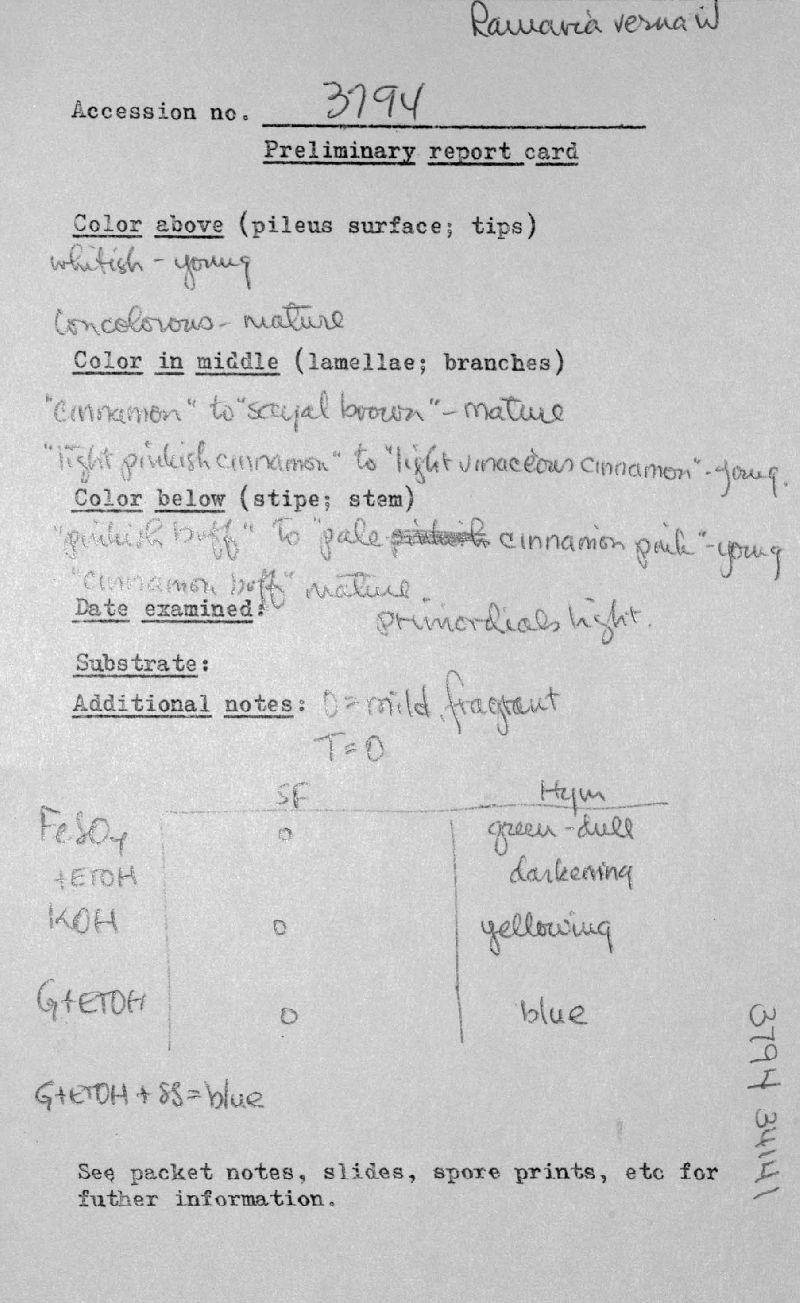 Ramaria verna
Accession no. 3794
Preliminary report card
Color above (pileus surface; tips)
whitish - young
Concolorous - mature
Color in middle (lamellae; branches)
"cinnamon" to "sayal brown" - mature
"light pinkish cinnamon" to "light vinaceous cinnamon" - young.
Color below (stipe; stem)
"pinkish buff" to "pale cinnamon pink" - young
"cinnamon buff" mature.
Date examined:
primordials light.
Substrate:
Additional notes: O = mild, fragrant
T = O
SF Hym
FeSO4 O green - dull
+ETOH darkening
KOH O yellowing
G+ETOH O blue
G+ETOH + SS = blue
3794 34141
See packet notes, slides, spore prints, etc for
futher information.